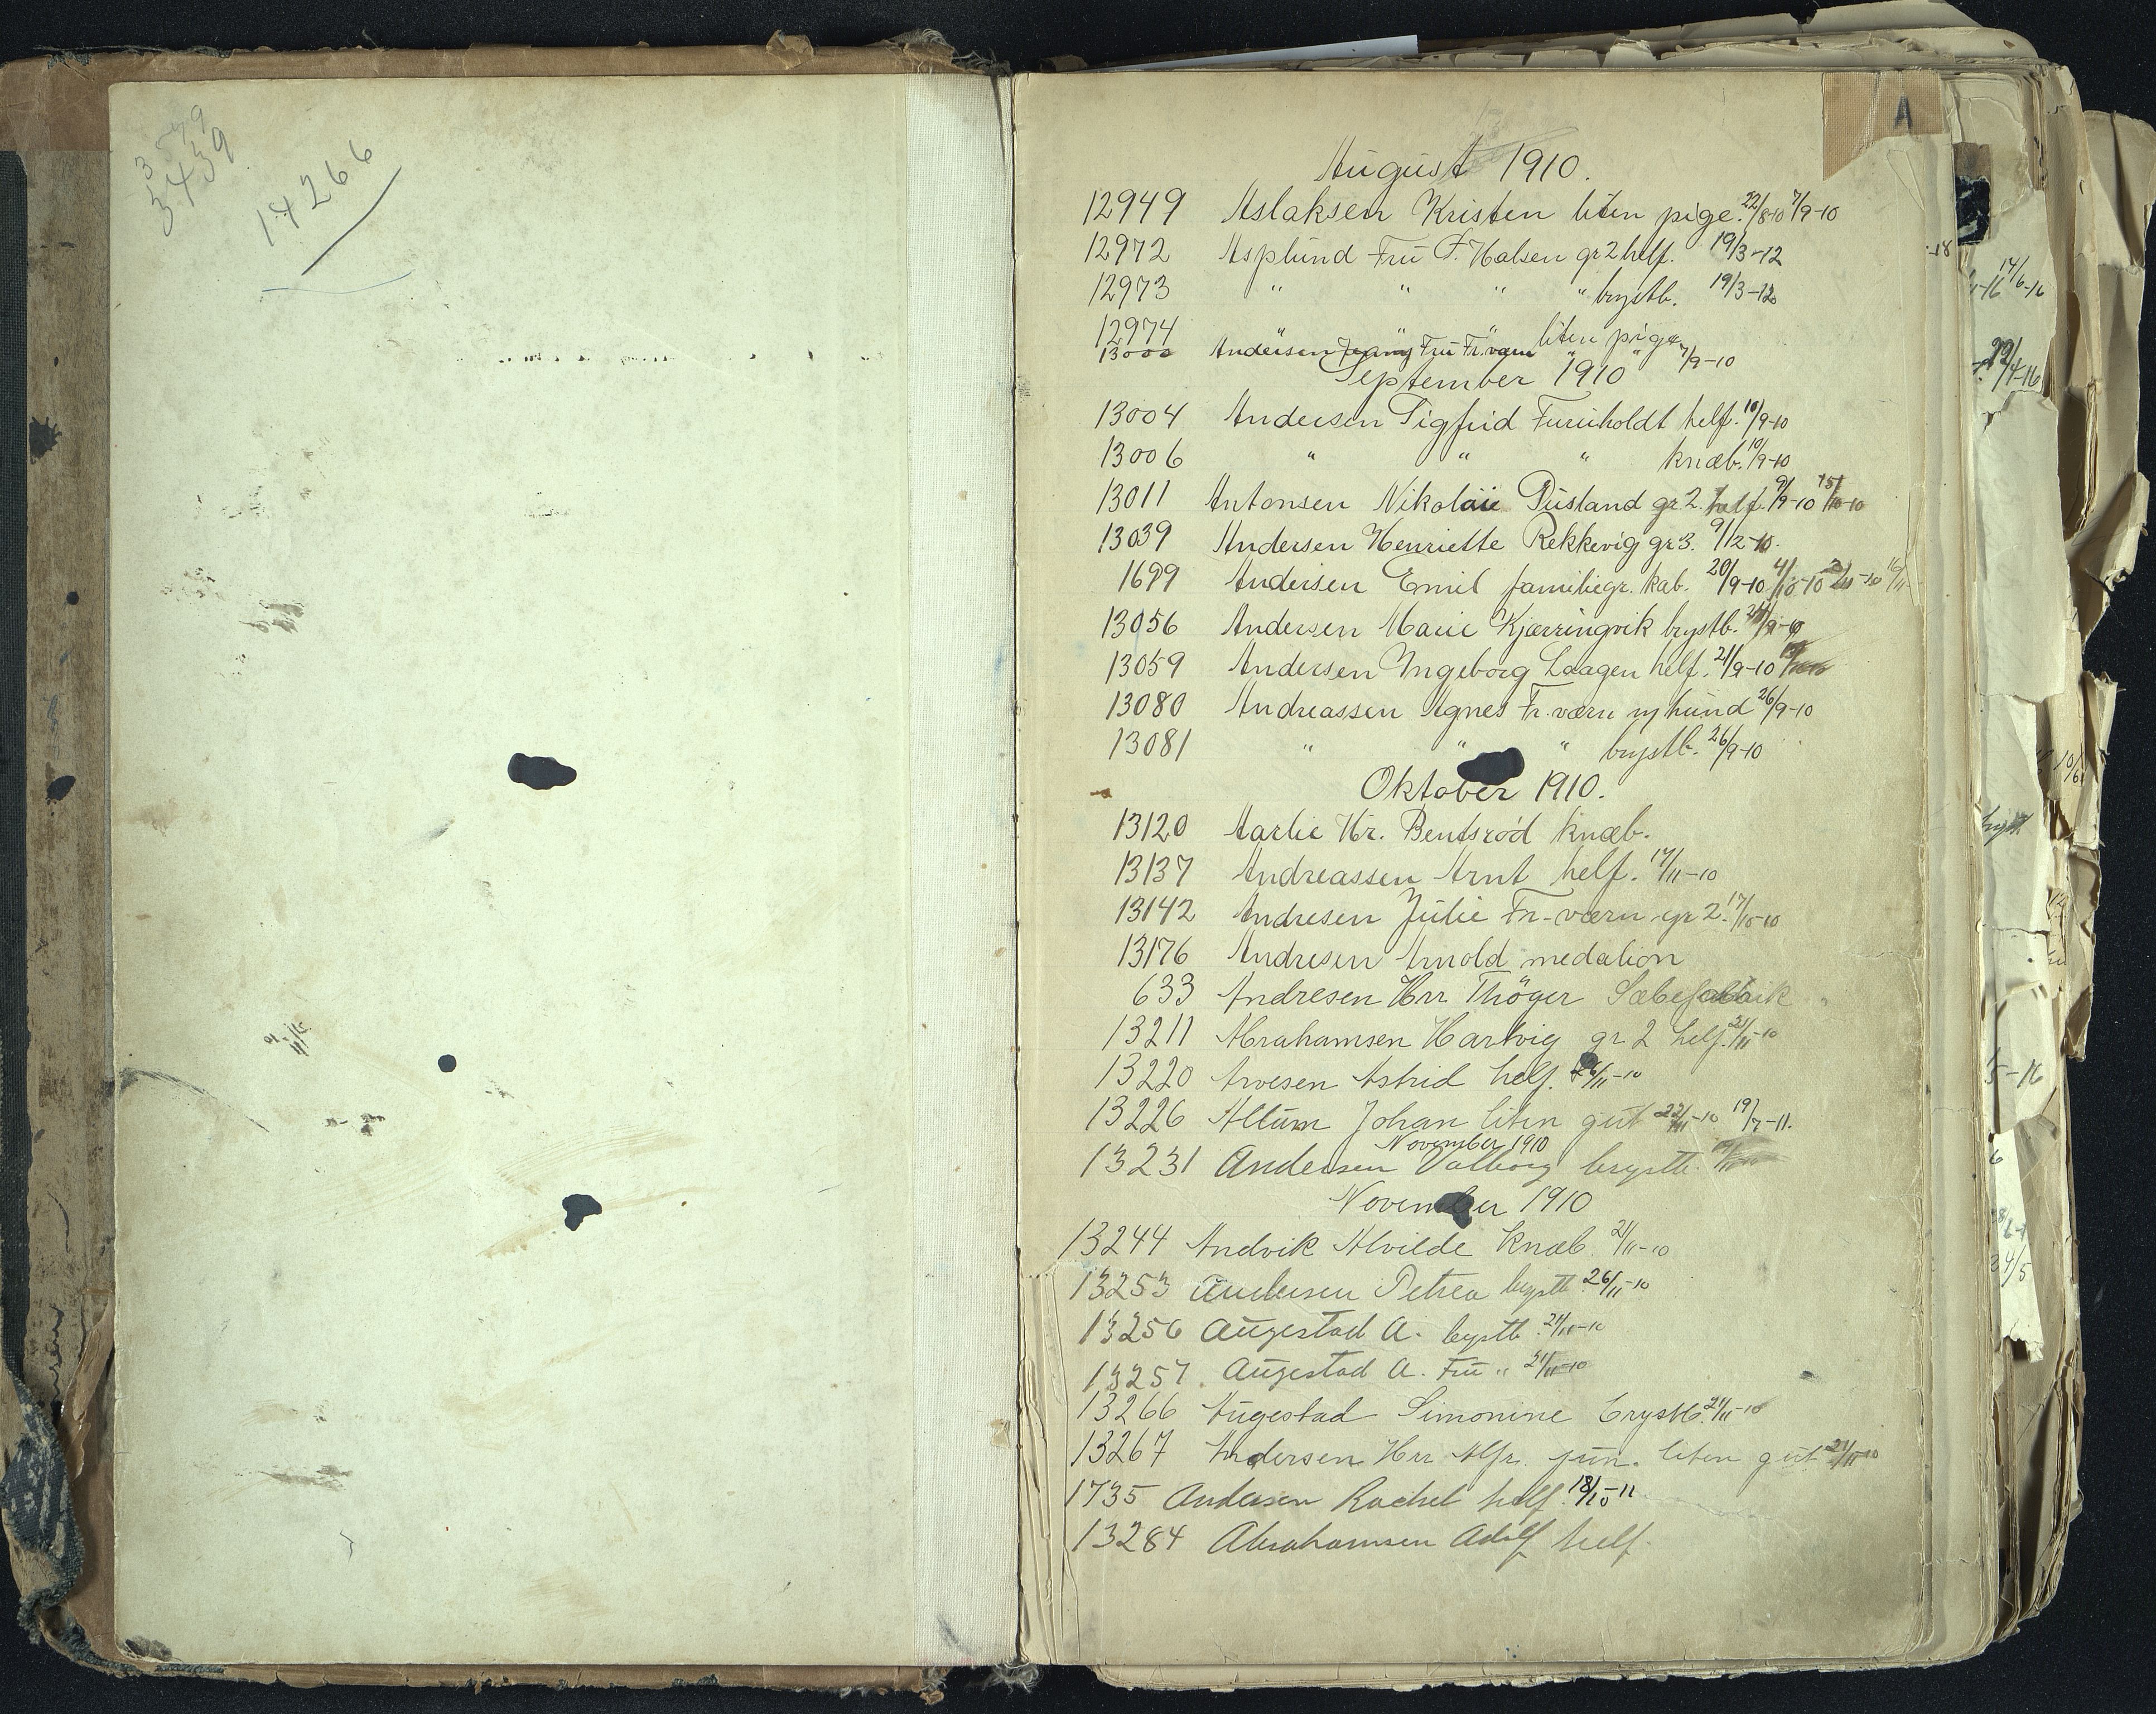 3599
3439
14266
A
August 1910.
12949 Aslaksen Kristen liten pige. 22/8-10 7/9-10
12972 Asplund Fru F. Halsen gr 2 helf. 19/3-12
12973 " " " " brystb. 19/3-12
12974 " " " liten pige
13000 Andersen Fru Fr.værn " " 7/9-10
September 1910
13004 Andersen Sigfrid Furuholdt helf. 10/9-10
13006 " " " knæb. 10/9-10
13011 Antonsen Nikolai Pusland gr. 2. helf. 9/9-10 15/10-10
13039 Andersen Henriette Rekkevig gr 3. 9/12-10.
1699 Andersen Emil familiegr. kab. 20/9-10 4/10-10
13056 Andersen Marie Kjærringvik brystb. 24/9-10
13059 Andersen Ingeborg Laagen helf. 21/9-10
13080 Andreassen Agnes Fr.værn m/hund 26/9-10
13081 " " " brystb. 26/9-10
Oktober 1910.
13120 Aarlie Hr. Bentsrød knæb.
13137 Andreassen Arnt helf. 17/11-10
13142 Andresen Julie Fr-værn gr 2. 17/10-10
13176 Andresen Arnold medalion
633 Andresen Hrr Thöger Sæbefabrik
13211 Abrahamsen Hartvig gr 2 helf. 21/11-10
13220 Arvesen Astrid helf. /11-10
13226 Allum Johan liten gut 22/11-10 19/7-11.
November 1910
13231 Andersen Valborg brystb.
November 1910
13244 Andvik Alvilde Knæb 21/11-10
13253 Andersen Petrea brystb 26/11-10
13256 Augestad A. brystb. 21/11-10
13257 Augestad A. Fru " 21/11-10
13266 Augestad Simonine brystb. 21/11-10
13267 Andersen Hrr Alfr. jun. liten gut 21/11-10
1735 Andersen Rachel helf. 18/10-11
13284 Abrahamsen Adolf helf.